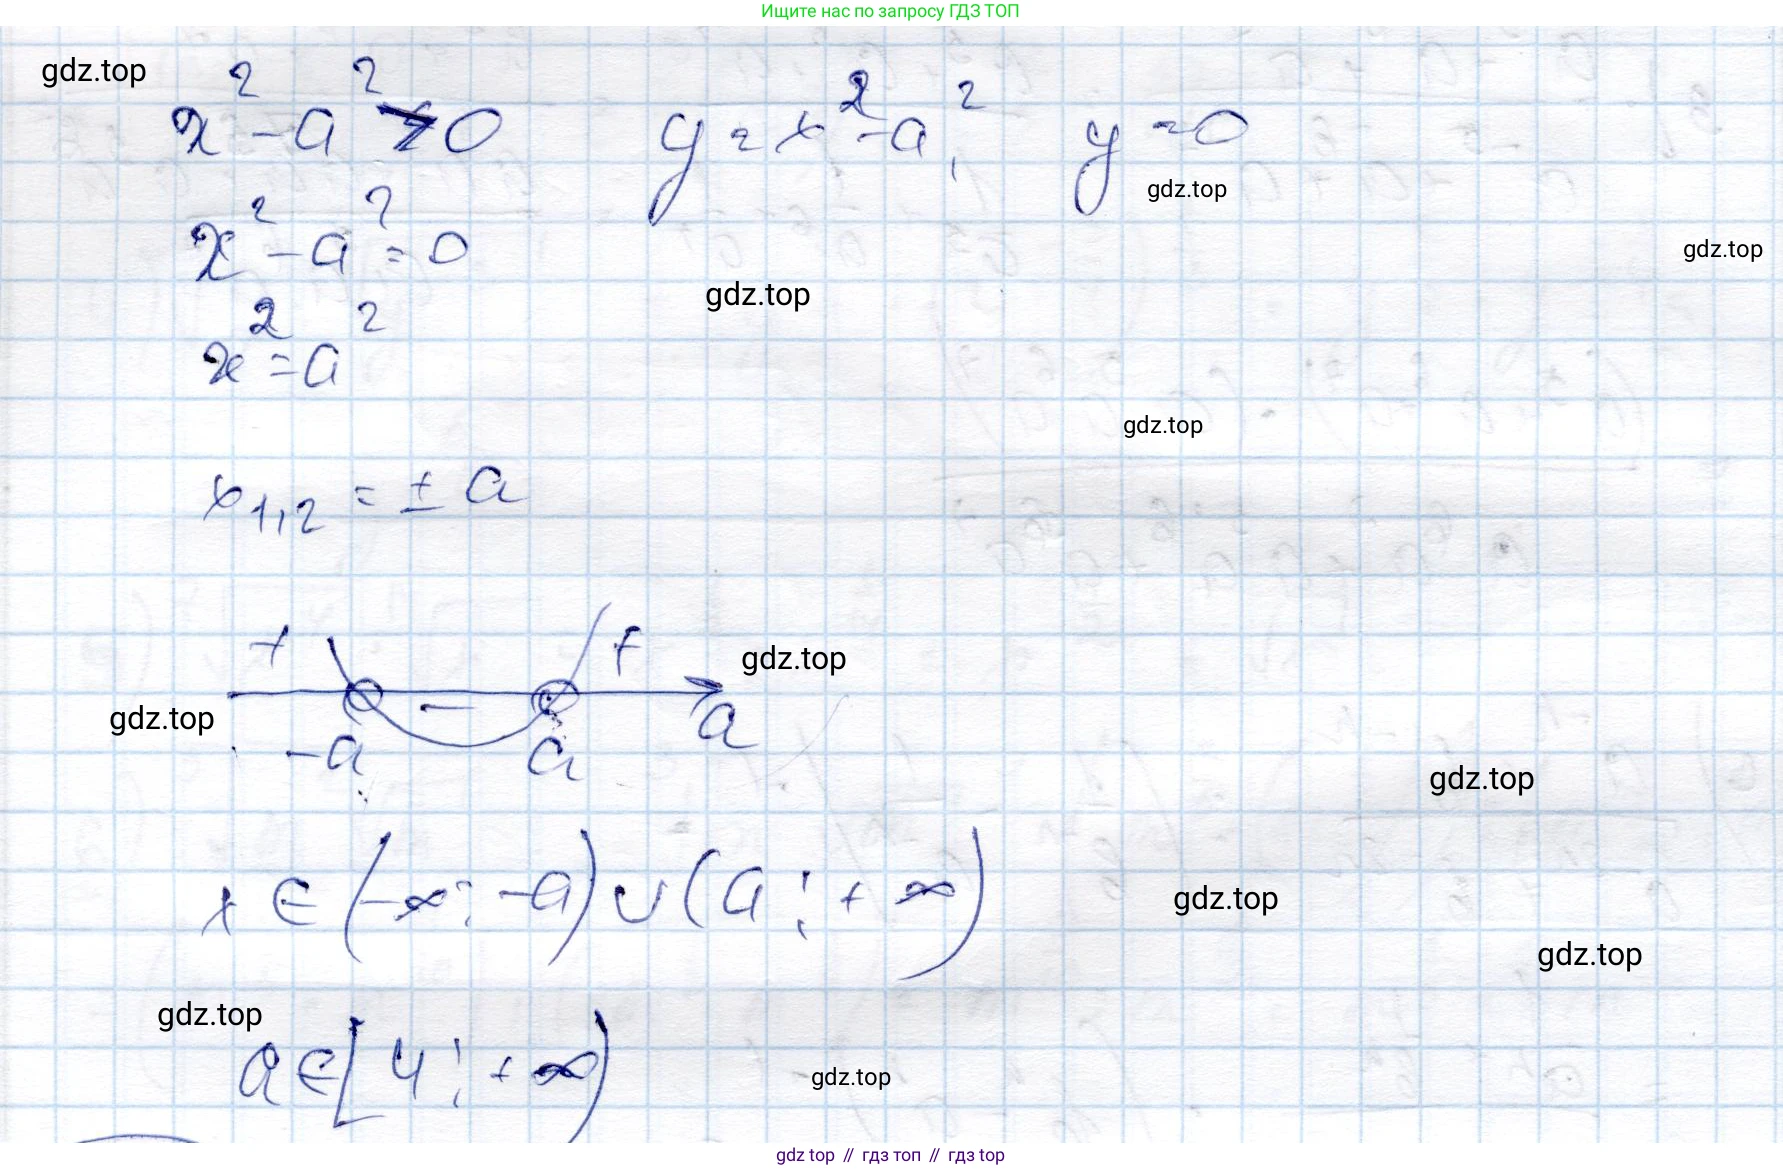 Ищите нас по запросу ГДЗ ТОП
gdz.top
x² - a² > 0    y = x² - a²,    y = 0
gdz.top
x² - a² = 0
gdz.top
gdz.top
x² = a²
gdz.top
x₁,₂ = ± a
+ +
gdz.top
gdz.top
−
-a a a
gdz.top
x ∈ (-∞; -a) ∪ (a; +∞)
gdz.top
gdz.top
gdz.top
a ∈ [4; +∞)
gdz.top
gdz top // гдз топ // гдз top